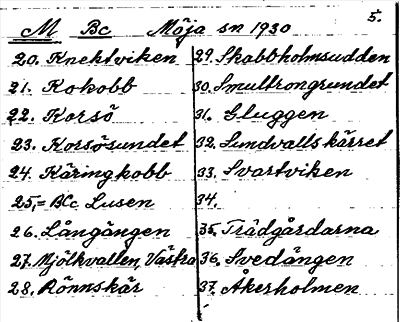 5.
M Bc Möja sn 1930
20. Knektviken
21. Kokobb
22. Korsö
23. Korsösundet
24. Käringkobb
25,= BCc Lusen
26. Långängen
27. Mjölkvallen, Västra
28. Rönnskär
29. Skabbholmsudden
30. Smultrongrundet
31. Gluggen
32. Sundvallskärret
33. Svartviken
34.
35. Trädgårdarna
36. Svedängen
37. Åkerholmen